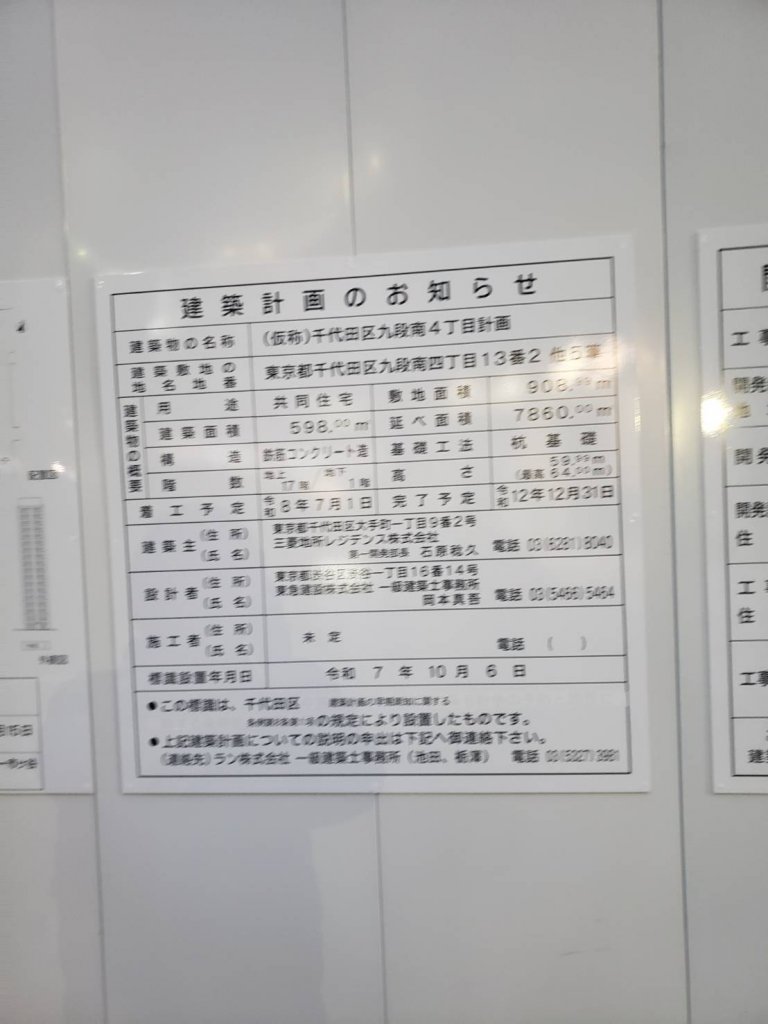 配置図
外観図
建築計画のお知らせ
建築物の名称 (仮称)千代田区九段南4丁目計画
建築敷地の地名地番 東京都千代田区九段南四丁目13番2 他5筆
建築物の概要
用途 共同住宅 敷地面積 908.⁹⁹㎡
建築面積 598.⁰⁰㎡ 延べ面積 7860.⁰⁰㎡
構造 鉄筋コンクリート造 基礎工法 杭基礎
階数 地上17階 地下1階 高さ 59.⁹⁹m
(最高 64.⁰⁰m)
着工予定 令和8年7月1日 完了予定 令和12年12月31日
建築主 (住所) 東京都千代田区大手町一丁目9番2号
(氏名) 三菱地所レジデンス株式会社
第一開発部長 石原稔久 電話 03(6281)8040
設計者 (住所) 東京都渋谷区渋谷一丁目16番14号
(氏名) 東急建設株式会社 一級建築士事務所
岡本真吾 電話 03(5466)5464
施工者 (住所)(氏名) 未定 電話 ( )
標識設置年月日 令和7年10月6日
●この標識は、千代田区
の規定により設置したものです。
●上記建築計画についての説明の申出は下記へ御連絡下さい。
(連絡先)ラン株式会社 一級建築士事務所 (池田、栃澤) 電話 03(5327)3981
工事
開発
開発
開発
住
工事
住
工事